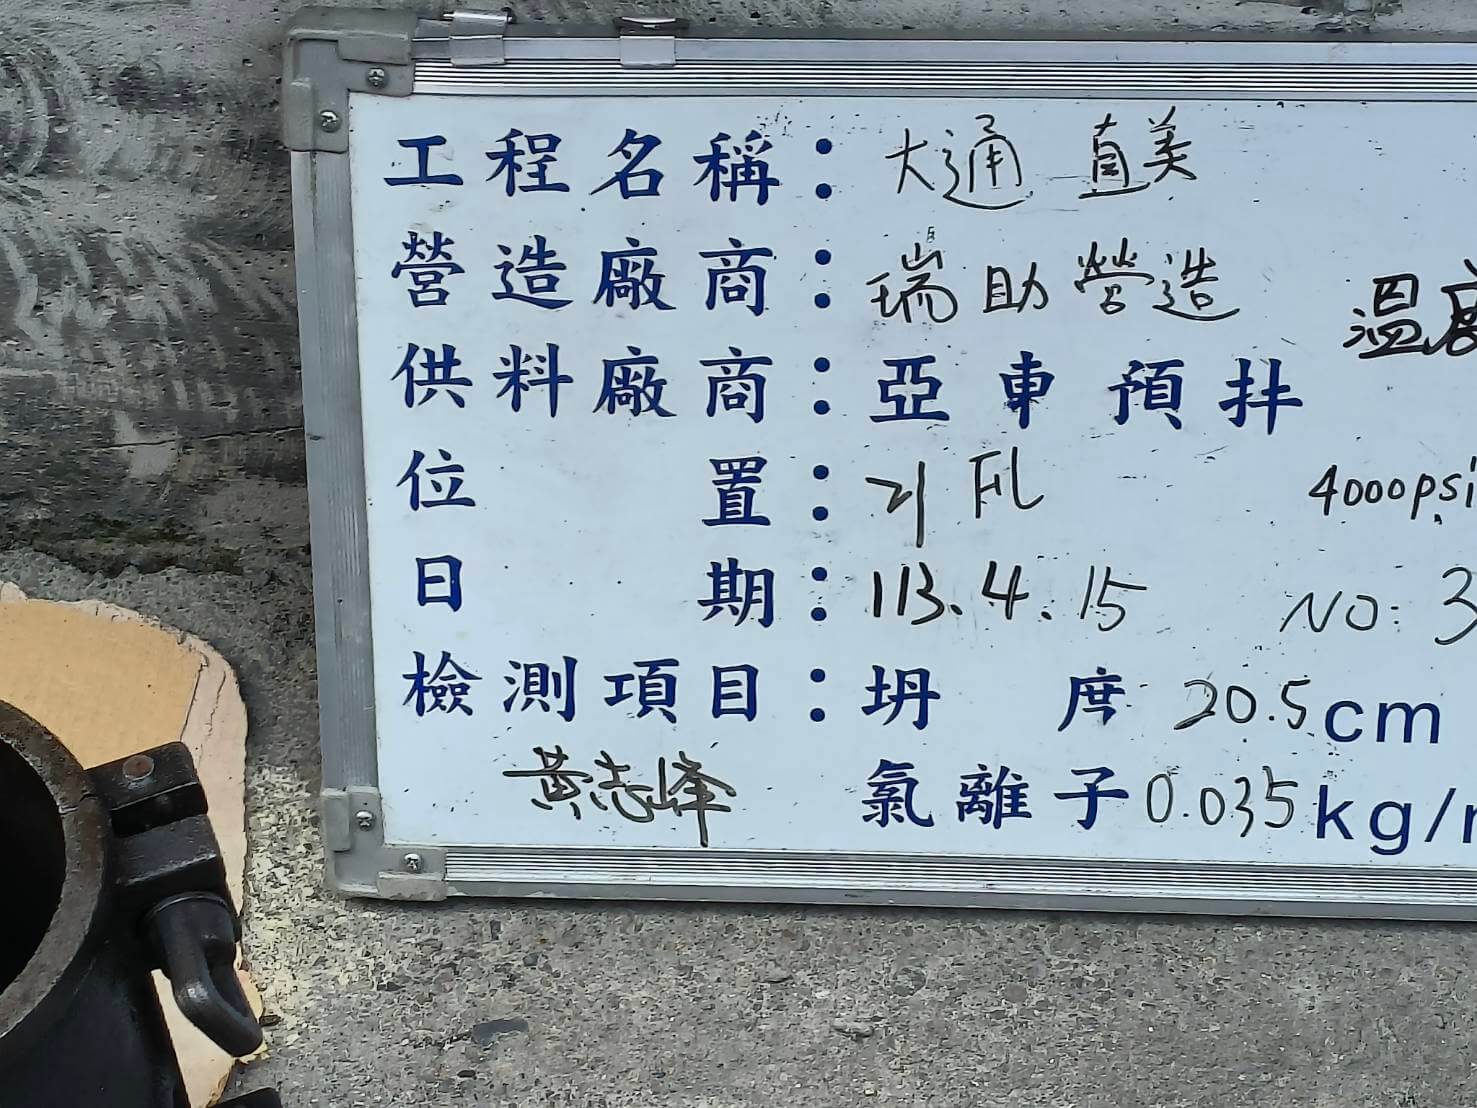 工程名稱：大通 直美
營造廠商：瑞助營造
溫度
供料廠商：亞東預拌
位置：21 FL 4000psi
日期：113.4.15 NO:3
檢測項目：坍度20.5cm
黃志峰 氯離子0.035kg/